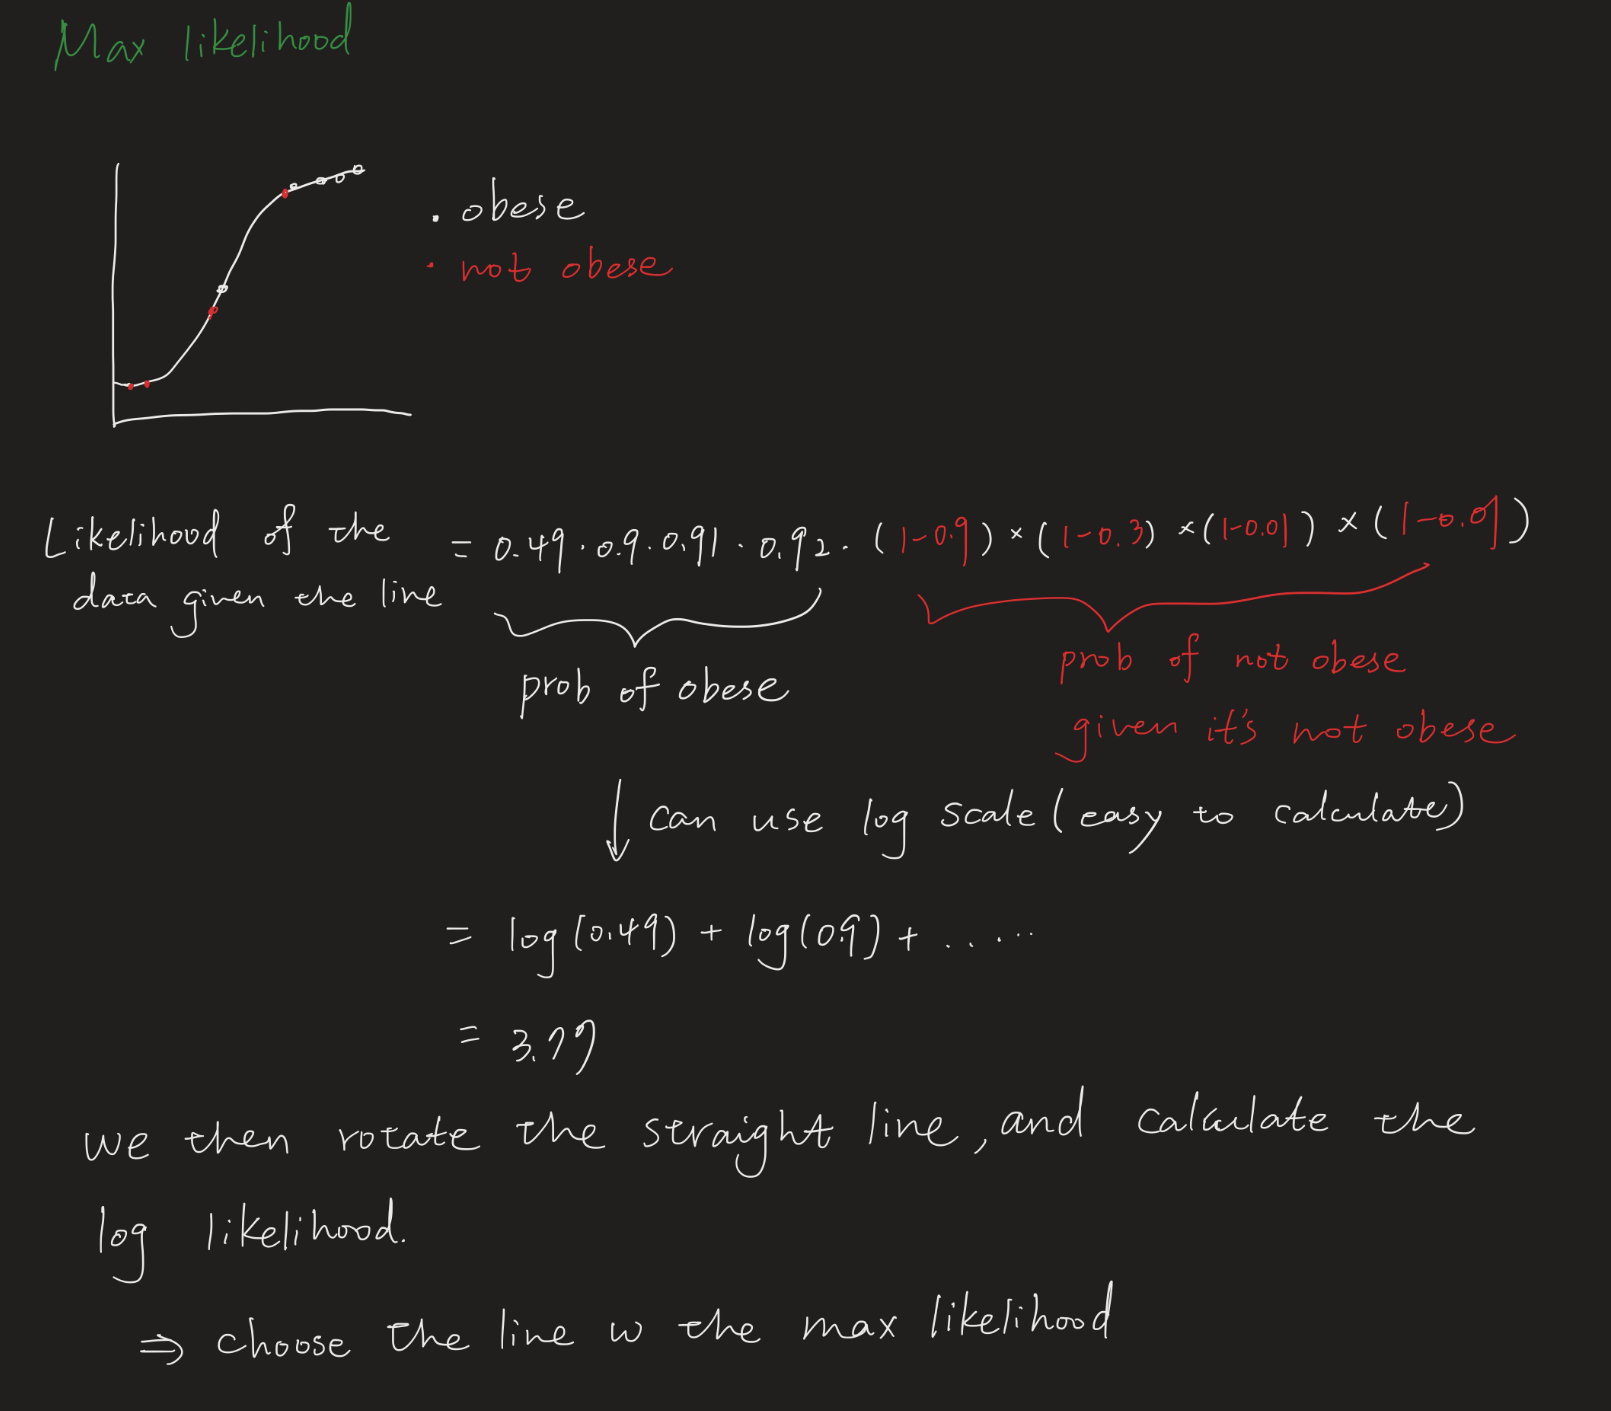 Max likelihood
. obese
. not obese
Likelihood of the
data given the line
= 0.49 · 0.9 · 0.91 · 0.92 · (1-0.9) × (1-0.3) × (1-0.01) × (1-0.01)
prob of obese
prob of not obese
given it's not obese
↓ can use log scale (easy to calculate)
= log(0.49) + log(0.9) + .....
= 3.77
we then rotate the straight line, and calculate the
log likelihood.
⇒ choose the line w the max likelihood